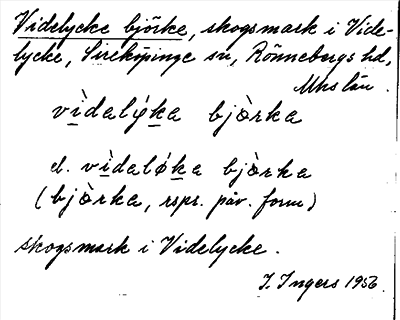 Videlycke björke, skogsmark i Vide-
lycke, Sireköpinge sn, Rönnebergs hd,
Mhs län.
vìdalýka bjòrka
d. vìdaløka bjòrka
(bjòrka, rspr. påv. form)
skogsmark i Videlycke.
I. Ingers 1956